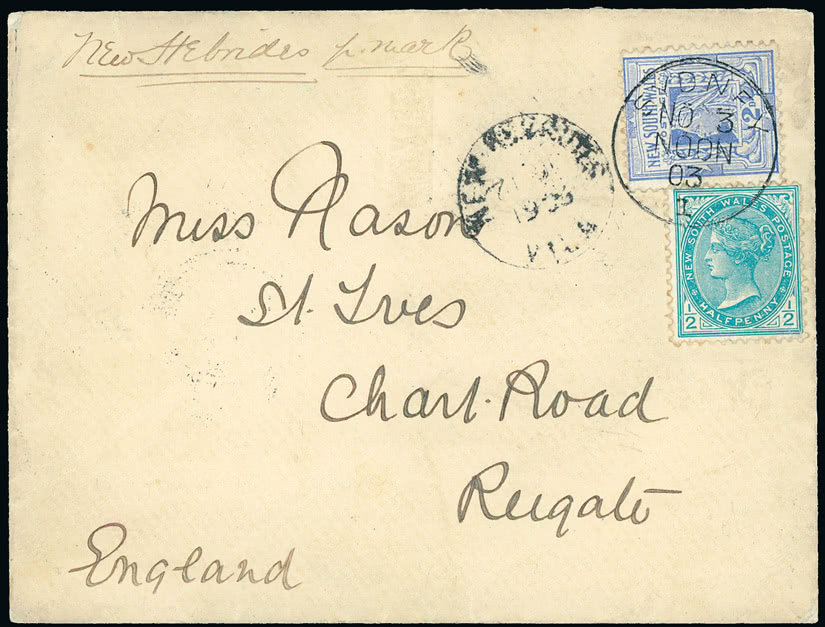 New Hebrides p. mark
NEW SOUTH WALES
2D
SYDNEY
NO 3
NOON
03
1
NEW HEBRIDES
VILA
NEW SOUTH WALES POSTAGE
HALFPENNY
1/2 1/2
Miss Nason
St. Ives
Chart. Road
Reigate
England